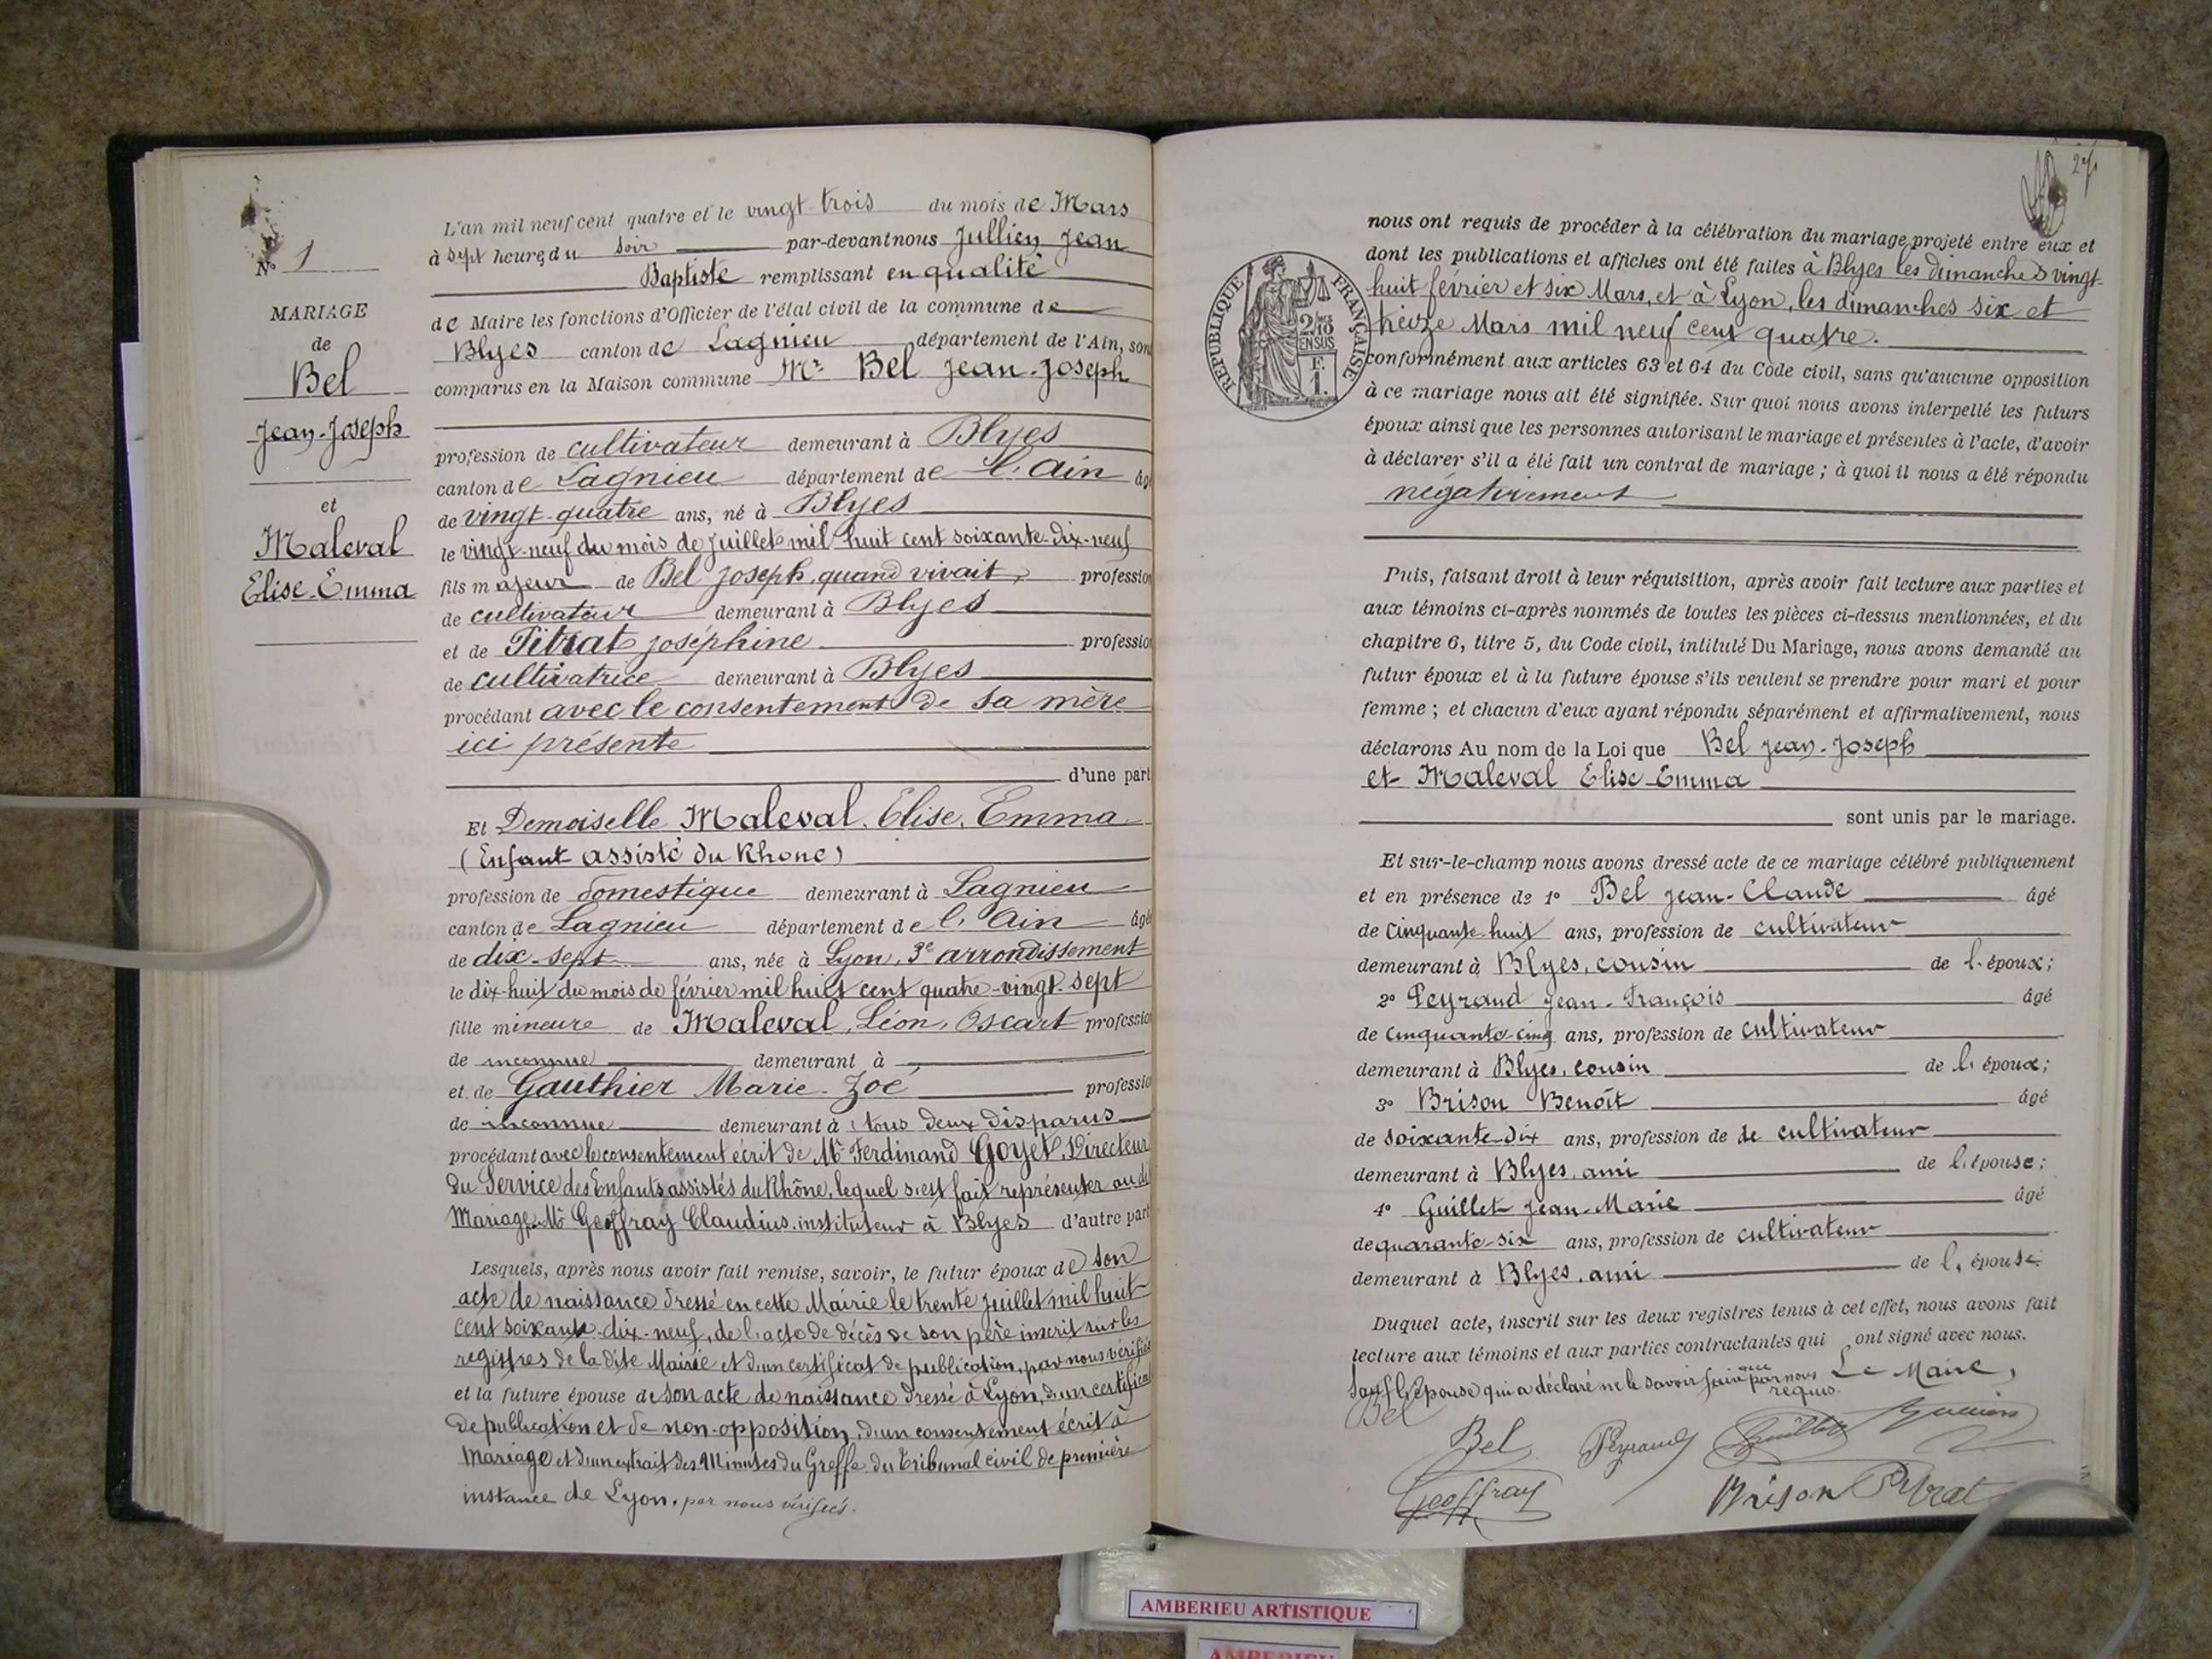 N° 1
MARIAGE
de
Bel
Jean-Joseph
et
Maleval
Elise-Emma
L'an mil neuf cent quatre et le vingt trois du mois de Mars
à sept heures du soir par-devant nous Jullien Jean
Baptiste remplissant en qualité
de Maire les fonctions d'Officier de l'état civil de la commune de
Blyes canton de Lagnieu département de l'Ain, son
comparus en la Maison commune Mr Bel Jean-Joseph
profession de cultivateur demeurant à Blyes
canton de Lagnieu département de l'Ain âgé
de vingt-quatre ans, né à Blyes
le vingt-neuf du mois de juillet mil huit cent soixante-dix-neuf
fils majeur de Bel Joseph, quand vivait, profession
de cultivateur demeurant à Blyes
et de Pitrat Joséphine profession
de cultivatrice demeurant à Blyes
procédant avec le consentement de sa mère
ici présente
d'une part
Et Demoiselle Maleval, Elise, Emma
(Enfant assisté du Rhône)
profession de domestique demeurant à Lagnieu
canton de Lagnieu département de l'Ain âgé
de dix-sept ans, née à Lyon, 3e arrondissement
le dix-huit du mois de février mil huit cent quatre-vingt-sept
fille mineure de Maleval, Léon, Oscart profession
de inconnue demeurant à
et de Gauthier Marie-Zoé profession
de inconnue demeurant à : tous deux disparus
procédant avec le consentement écrit de Mr Ferdinand Goyet, Directeur
du Service des Enfants assistés du Rhône, lequel s'est fait représenter au dit
Mariage Mr Geoffray Claudius, instituteur à Blyes d'autre part
Lesquels, après nous avoir fait remise, savoir, le futur époux de son
acte de naissance dressé en cette Mairie le trente juillet mil huit
cent soixante-dix-neuf, de l'acte de décès de son père inscrit sur les
registres de la dite Mairie et d'un certificat de publication, par nous vérifiés
et la future épouse de son acte de naissance dressé à Lyon, d'un certificat
de publication et de non-opposition, d'un consentement écrit à
Mariage et d'un extrait des Minutes du Greffe du Tribunal civil de première
instance de Lyon, par nous vérifiés.
27
REPUBLIQUE FRANÇAISE
2/10
EN SUS
F.
1.
nous ont requis de procéder à la célébration du mariage projeté entre eux et
dont les publications et affiches ont été faites à Blyes les dimanches vingt-
huit février et six Mars, et à Lyon, les dimanches six et
treize Mars mil neuf cent quatre.
conformément aux articles 63 et 64 du Code civil, sans qu'aucune opposition
à ce mariage nous ait été signifiée. Sur quoi nous avons interpellé les futurs
époux ainsi que les personnes autorisant le mariage et présentes à l'acte, d'avoir
à déclarer s'il a été fait un contrat de mariage ; à quoi il nous a été répondu
négativement
Puis, faisant droit à leur réquisition, après avoir fait lecture aux parties et
aux témoins ci-après nommés de toutes les pièces ci-dessus mentionnées, et du
chapitre 6, titre 5, du Code civil, intitulé Du Mariage, nous avons demandé au
futur époux et à la future épouse s'ils veulent se prendre pour mari et pour
femme ; et chacun d'eux ayant répondu séparément et affirmativement, nous
déclarons Au nom de la Loi que Bel Jean-Joseph
et Maleval Elise-Emma
sont unis par le mariage.
Et sur-le-champ nous avons dressé acte de ce mariage célébré publiquement
et en présence de 1° Bel Jean-Claude âgé
de cinquante-huit ans, profession de cultivateur
demeurant à Blyes, cousin de l'époux ;
2° Peyraud Jean-François âgé
de cinquante-cinq ans, profession de cultivateur
demeurant à Blyes, cousin de l'époux ;
3° Brison Benoît âgé
de soixante-dix ans, profession de de cultivateur
demeurant à Blyes, ami de l'épouse ;
4° Guillet Jean-Marie âgé
de quarante-six ans, profession de cultivateur
demeurant à Blyes, ami de l'épouse.
Duquel acte, inscrit sur les deux registres tenus à cet effet, nous avons fait
lecture aux témoins et aux parties contractantes qui ont signé avec nous.
Sauf l'épouse qui a déclaré ne le savoir faire par nous Le Maire,
requis.
Bel
Bel Peyraud Guillet Jullien
Geoffray Brison Pitrat
AMBERIEU ARTISTIQUE
AMBERIEU